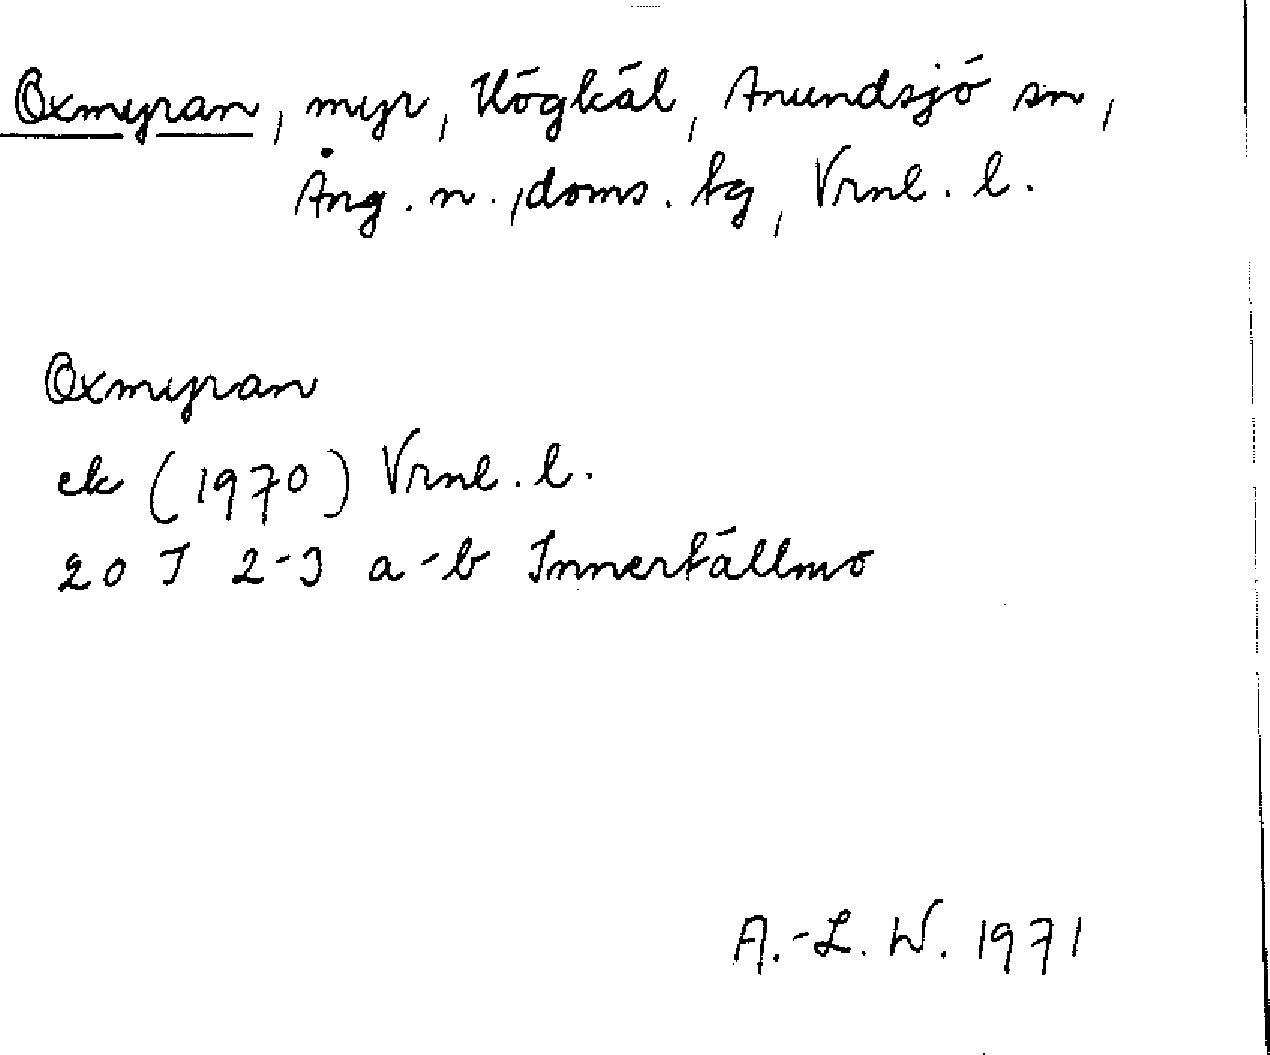 Oxmyran, myr, Högkäl, Anundsjö sn,
Ång. n., doms. tg, Vrnl. l.
Oxmyran
ek (1970) Vrnl. l.
20 J 2-3 a-b Innertällmo
A.-L. W. 1971